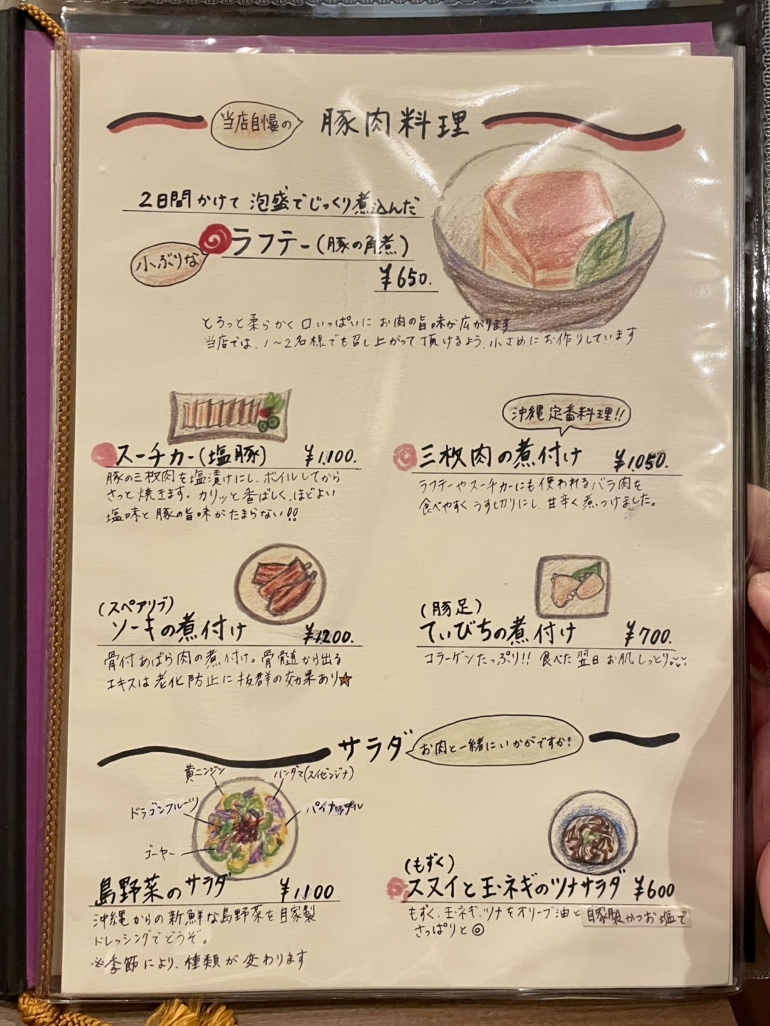 当店自慢の 豚肉料理
2日間かけて 泡盛でじっくり煮込んだ
小ぶりな ラフテー(豚の角煮)
¥650.
とろっと柔らかく口いっぱいに お肉の旨味が広がります
当店では、1〜2名様でも召し上がって頂けるよう、小さめにお作りしています
スーチカー(塩豚) ¥1,100.
豚の三枚肉を塩漬けにし、ボイルしてから
さっと焼きます。カリッと香ばしく、ほどよい
塩味と豚の旨味がたまらない!!
沖縄定番料理!!
三枚肉の煮付け ¥1,050.
ラフテーやスーチカーにも使われるバラ肉を
食べやすくうす切りにし、甘辛く煮つけました。
(スペアリブ)
ソーキの煮付け ¥1200.
骨付あばら肉の煮付け。骨髄から出る
エキスは老化防止に抜群の効果あり★
(豚足)
てぃびちの煮付け ¥700.
コラーゲンたっぷり!! 食べた翌日お肌しっとり。
サラダ お肉と一緒にいかがですか?
黄ニンジン
ハンダマ(スイゼンジナ)
ドラゴンフルーツ
ゴーヤー
島野菜のサラダ ¥1,100
沖縄からの新鮮な島野菜を自家製
ドレッシングでどうぞ。
※季節により、種類が変わります
(もずく)
スヌイと玉ネギのツナサラダ ¥600
もずく、玉ネギ、ツナをオリーブ油と自家製かつお塩で
さっぱりと◎